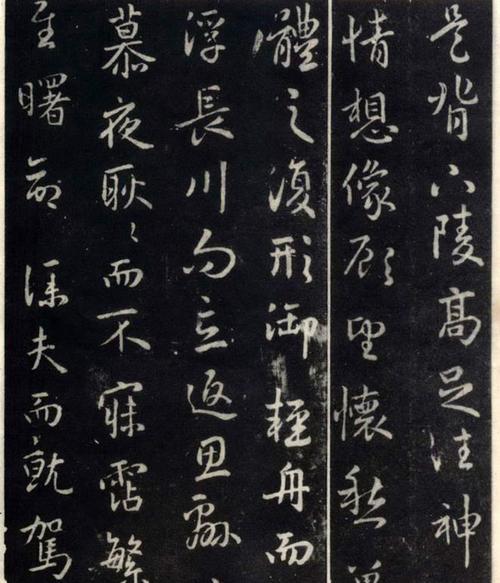 是背下陵高足往神
情想像顧望懷愁
體之復形御輕舟而
浮長川而忘返思綿
慕夜耿〻而不寐霑繁
至曙命僕夫而就駕